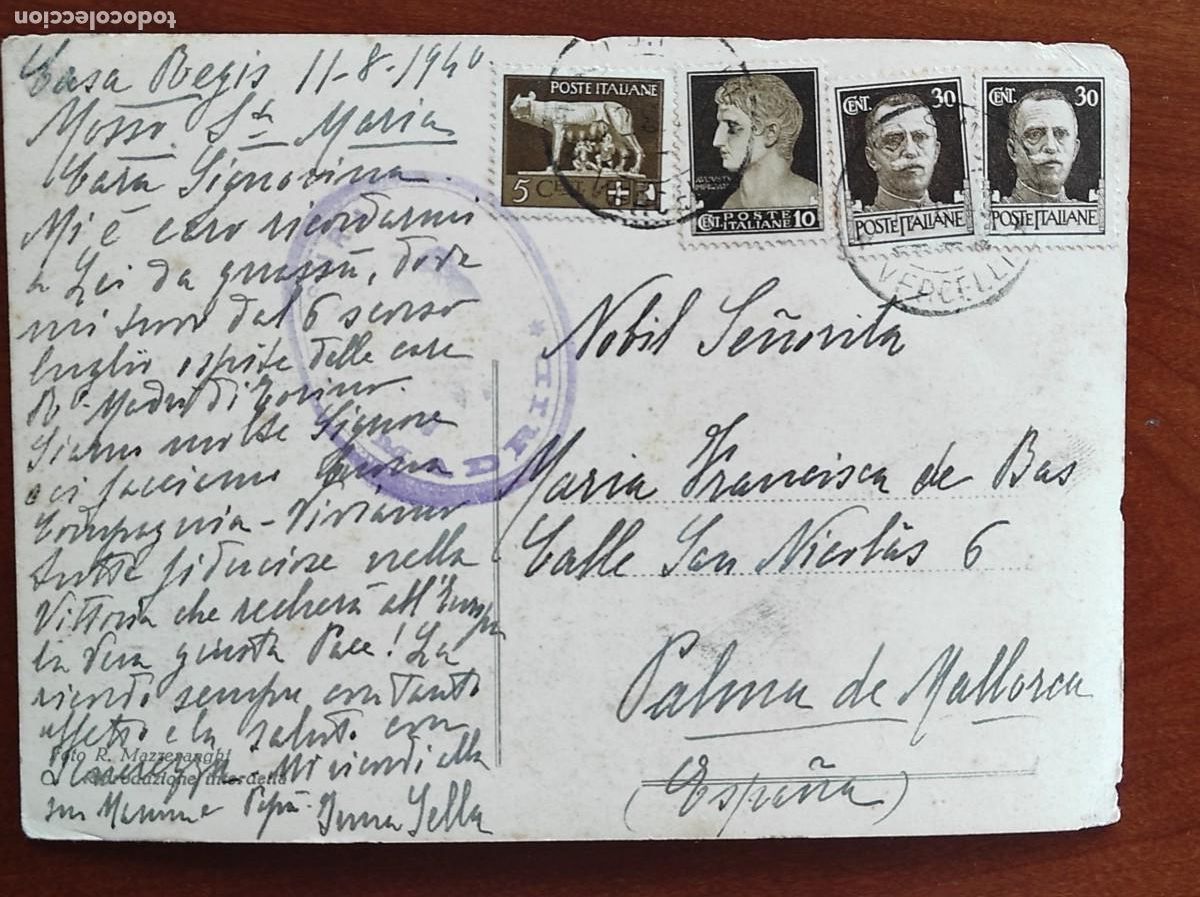 todocoleccion
Casa Regis 11-8-1940
Mosso Sta Maria
Cara Signorina
Mi è caro ricordarmi
a Lei da quassù, dove
mi trovo dal 6 scorso
luglio ospite delle care
Re Madri di Torino.
Siamo molte Signore
e ci facciamo buona
Compagnia - Viviamo
tutte fiduciose nella
Vittoria che recherà all'Europa
la vera giusta Pace! La
ricordo sempre con tanto
affetto e la saluto con
Mi ricordi alla
sua Mamma e Papà
Sella
Foto R. Mazzeranghi
Riproduzione interdetta
POSTE ITALIANE
5 CENT
AUGUSTO
CENT. POSTE ITALIANE 10
CENT. 30
POSTE ITALIANE
CENT. 30
POSTE ITALIANE
VERCELLI
MADRID *
Nobil Señorita
Maria Francisca de Bas
Calle San Nicolás 6
Palma de Mallorca
(España)